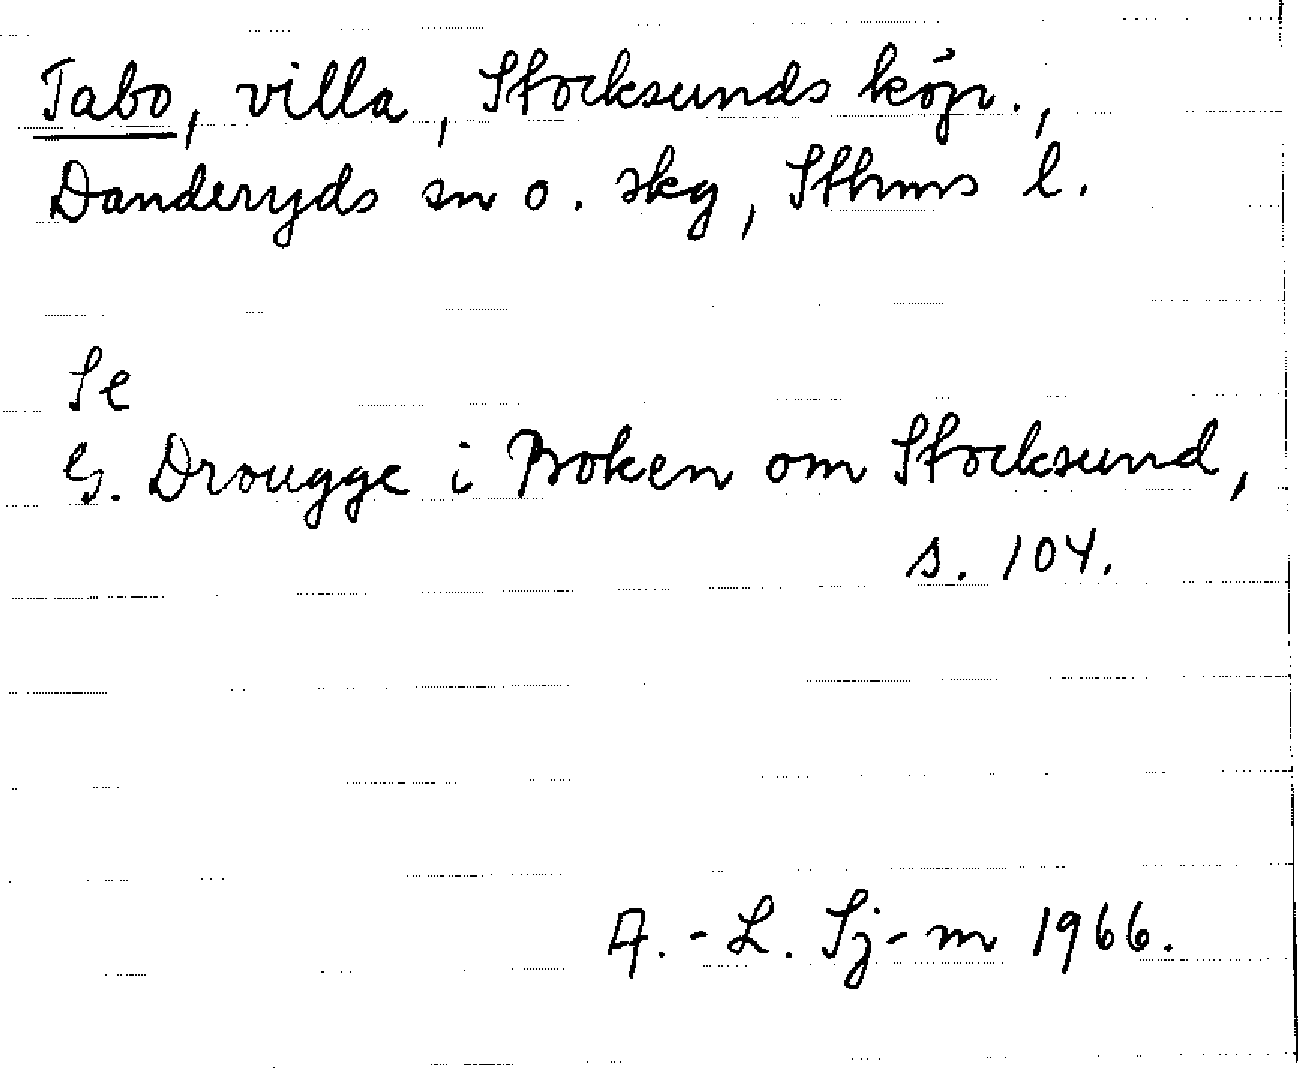 Tabo, villa, Stocksunds köp.,
Danderyds sn o. skg, Sthms l.
Se
G. Drougge i Boken om Stocksund,
s. 104.
A.-L. Sj-m 1966.